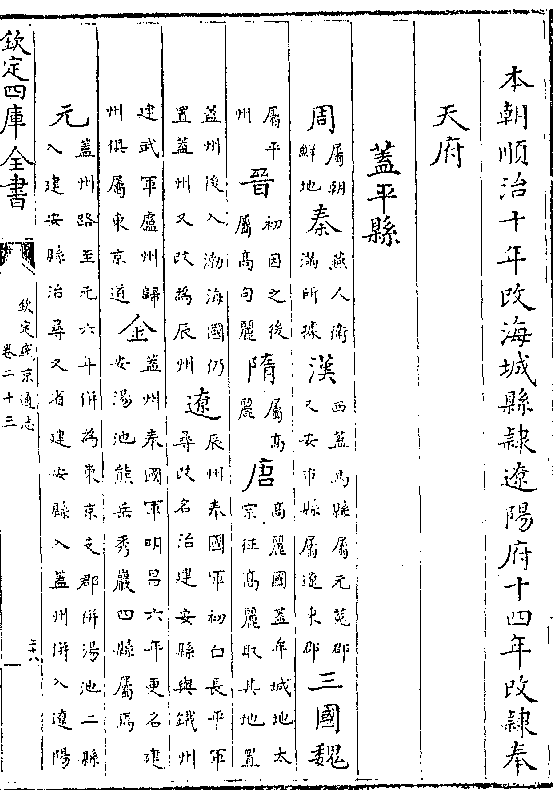 本朝順治十年改海城縣隸遼陽府十四年改隸奉
天府
蓋平縣
周屬朝鮮地秦燕人衛滿所據漢西蓋馬縣屬元菟郡又安市縣屬遼東郡三國魏
屬平州晉初因之後屬高句麗隋屬高麗唐高麗國蓋牟城地太宗征高麗取其地置
蓋州後入渤海國仍置蓋州又改為辰州遼辰州奉國軍初曰長平軍尋改名治建安縣與鐵州
建武軍盧州歸州俱屬東京道金蓋州奉國軍明昌六年更名建安湯池熊岳秀巖四縣屬焉
元蓋州路至元六年併為東京支郡併湯池二縣入建安縣治尋又省建安縣入蓋州併入遼陽
欽定四庫全書
欽定盛京通志
卷二十三